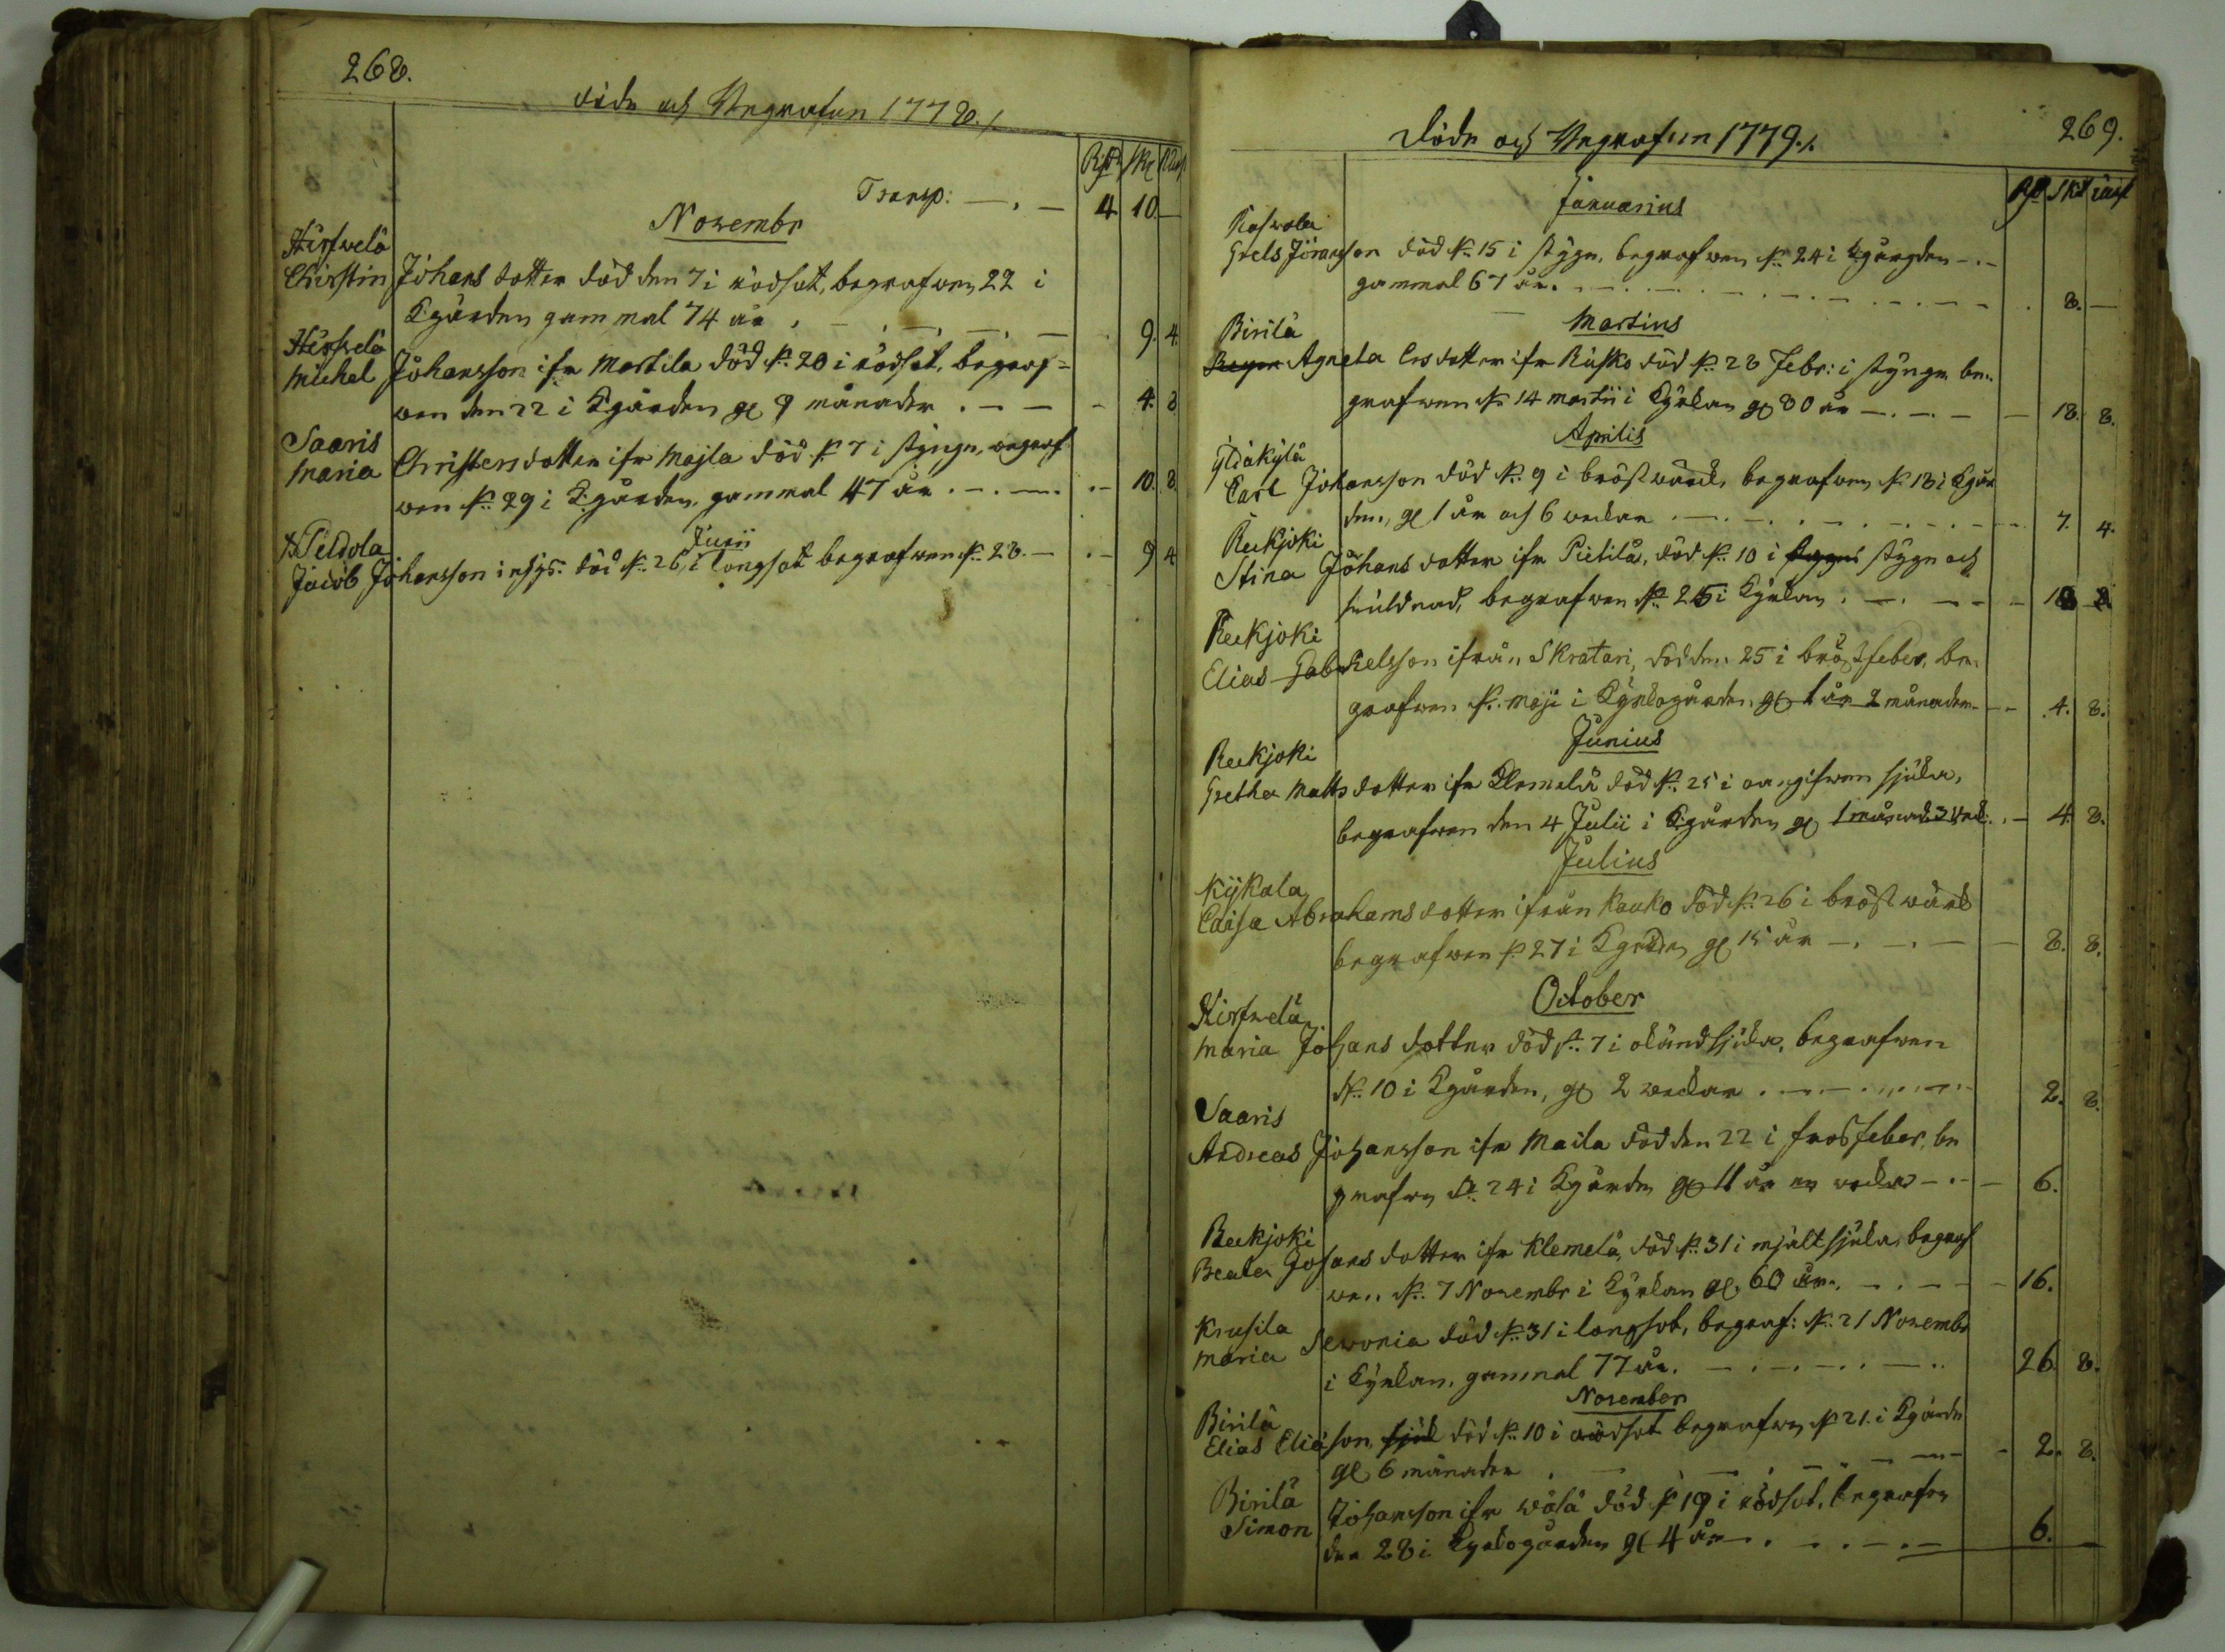 268.
döde och Begrafven 1778./.
Rdr skl rst
Transp: — . — 4 10 —
Novembr
Hirfvelä
Christin Johans dotter död den 7 i rödsot, begrafven 22 i
Kgården gammal 74 år . — . — . — . — 9. 4.
Hirfvelä
Michel Johansson ifr Martila död d: 20 i rödsot, begraf=
ven den 22 i Kgården gl 9 månader . — — - 4. 8.
Saaris
Maria Christersdotter ifr Majla död d: 7 i styng, begraf
ven d: 29 i Kgården, gammal 47 år . — . — . - 10. 8.
Junii
Peldola
Jacob Johansson död d: 26 i långsot begrafven d: 28. — . - 9 4
269.
Döde och Begrafven 1779./.
Rd Skl
Januarius
Grels Jöransson död d: 15 i styng, begrafven d: 24 i Kgården — . —
gammal 67 år . — . — . — 8. —
Martius
Birilä
Agneta Ersdotter ifr Rusko död d: 28 Febr: i styng be-
grafven d: 14 martii i Kyrkan gl 80 år — . — . — 18. 8.
Aprilis
Yläkylä
Carl Johansson död d: 9 i bröstwärk, begrafven d: 18 i Kgår
den, gl 1 år och 6 veckor . — . — . — 7. 4.
Reekjoki
Stina Johans dotter ifr Pietilä, död d: 10 i styng och
svullnad, begrafven d: 25 i Kyrkan . — . — — - 18 8.
Reekjoki
Elias Gabrielsson ifrån Skratari, död den 25 i bröstfeber, be-
grafven d: Maji i Kyrkogården, gl 1 år 2 månader — - 4. 8.
Junius
Reekjoki
Gretha Matts dotter ifr Klemelä död d: 25 i oangifven sjuka,
begrafven den 4 Julii i Kgården gl 1 månad 3 vek . - 4. 8.
Julius
Kÿkala
Caisa Abrahams dotter ifrån Kauko död d: 26 i bröstwärk
begrafven d: 27 i Kgården gl 15 år — . — . — 8. 8.
October
Hirfvelä
Maria Johans dotter död d: 7 i okänd sjuka, begrafven
d: 10 i Kgården, gl 2 veckor . — . — . — 2. 8.
Saaris
Andreas Johansson ifr Maila död den 22 i frosfeber, be
grafven d: 24 i Kgården gl 11 år en vecka — . — 6.
Reekjoki
Beata Johans dotter ifr Klemelä, död d: 31 i mjältsjuka, begraf
ven d: 7 Novembr i Kyrkan gl 60 år . — . — — 16.
Krusila
Maria Sevonia död d: 31 i långsot, begraf: d: 21 Novembr
i Kyrkan, gammal 77 år . — . — . — . . 26. 8.
November
Birilä
Elias Eliæson, död d: 10 i rödsot begrafven d: 21 i Kgården
gl 6 månader . — . — . — — 2. 8.
Birilä
Simon Johansson ifr död d: 19 i rödsot, begrafven
den 28 i Kyrkogården gl 4 år — . . — . — 6. —